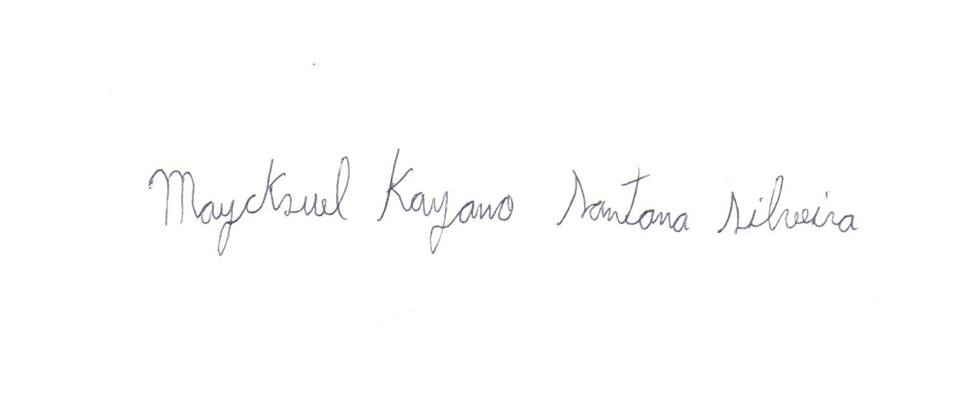 Maycksuel Kayano Santana Silveira